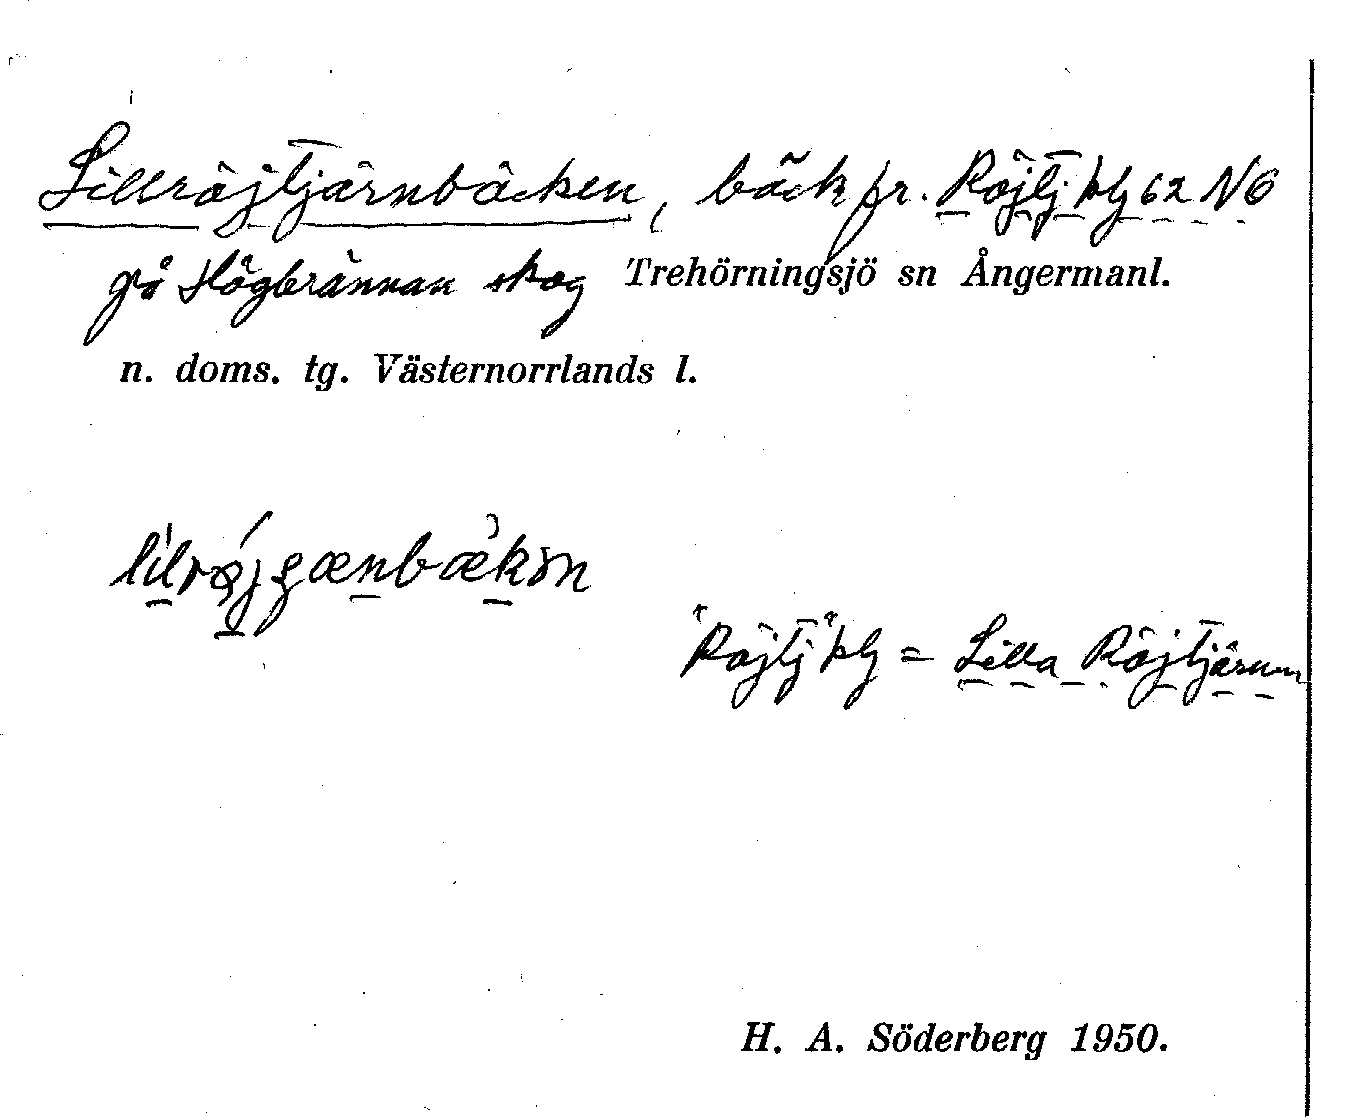 Lillröjtjärnbäcken, bäck fr. Röjtj kbg 62 NO
på Högbrännan skog Trehörningsjö sn Ångermanl.
n. doms. tg. Västernorrlands l.
"Röjtj" kbg = Lilla Röjtjärnen
H. A. Söderberg 1950.